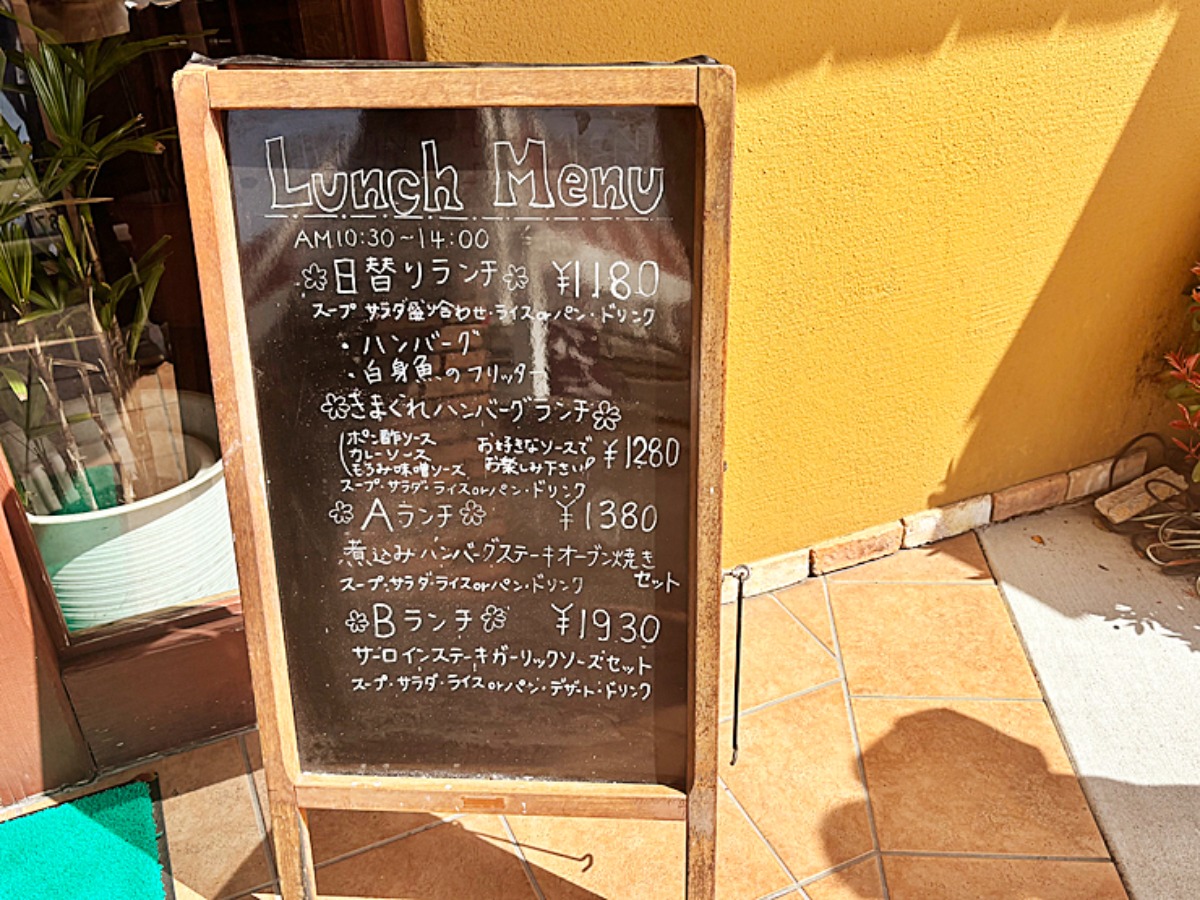 Lunch Menu
AM10:30～14:00
日替りランチ ¥1180
スープ サラダ盛り合わせ・ライスorパン・ドリンク
・ハンバーグ
・白身魚のフリッター
きまぐれハンバーグランチ
ポン酢ソース
カレーソース
もろみ味噌ソース
お好きなソースで
お楽しみ下さい♪
¥1280
スープ・サラダ・ライスorパン・ドリンク
Aランチ ¥1380
煮込みハンバーグステーキオーブン焼き
セット
スープ・サラダ・ライスorパン・ドリンク
Bランチ ¥1930
サーロインステーキガーリックソースセット
スープ・サラダ・ライスorパン・デザート・ドリンク